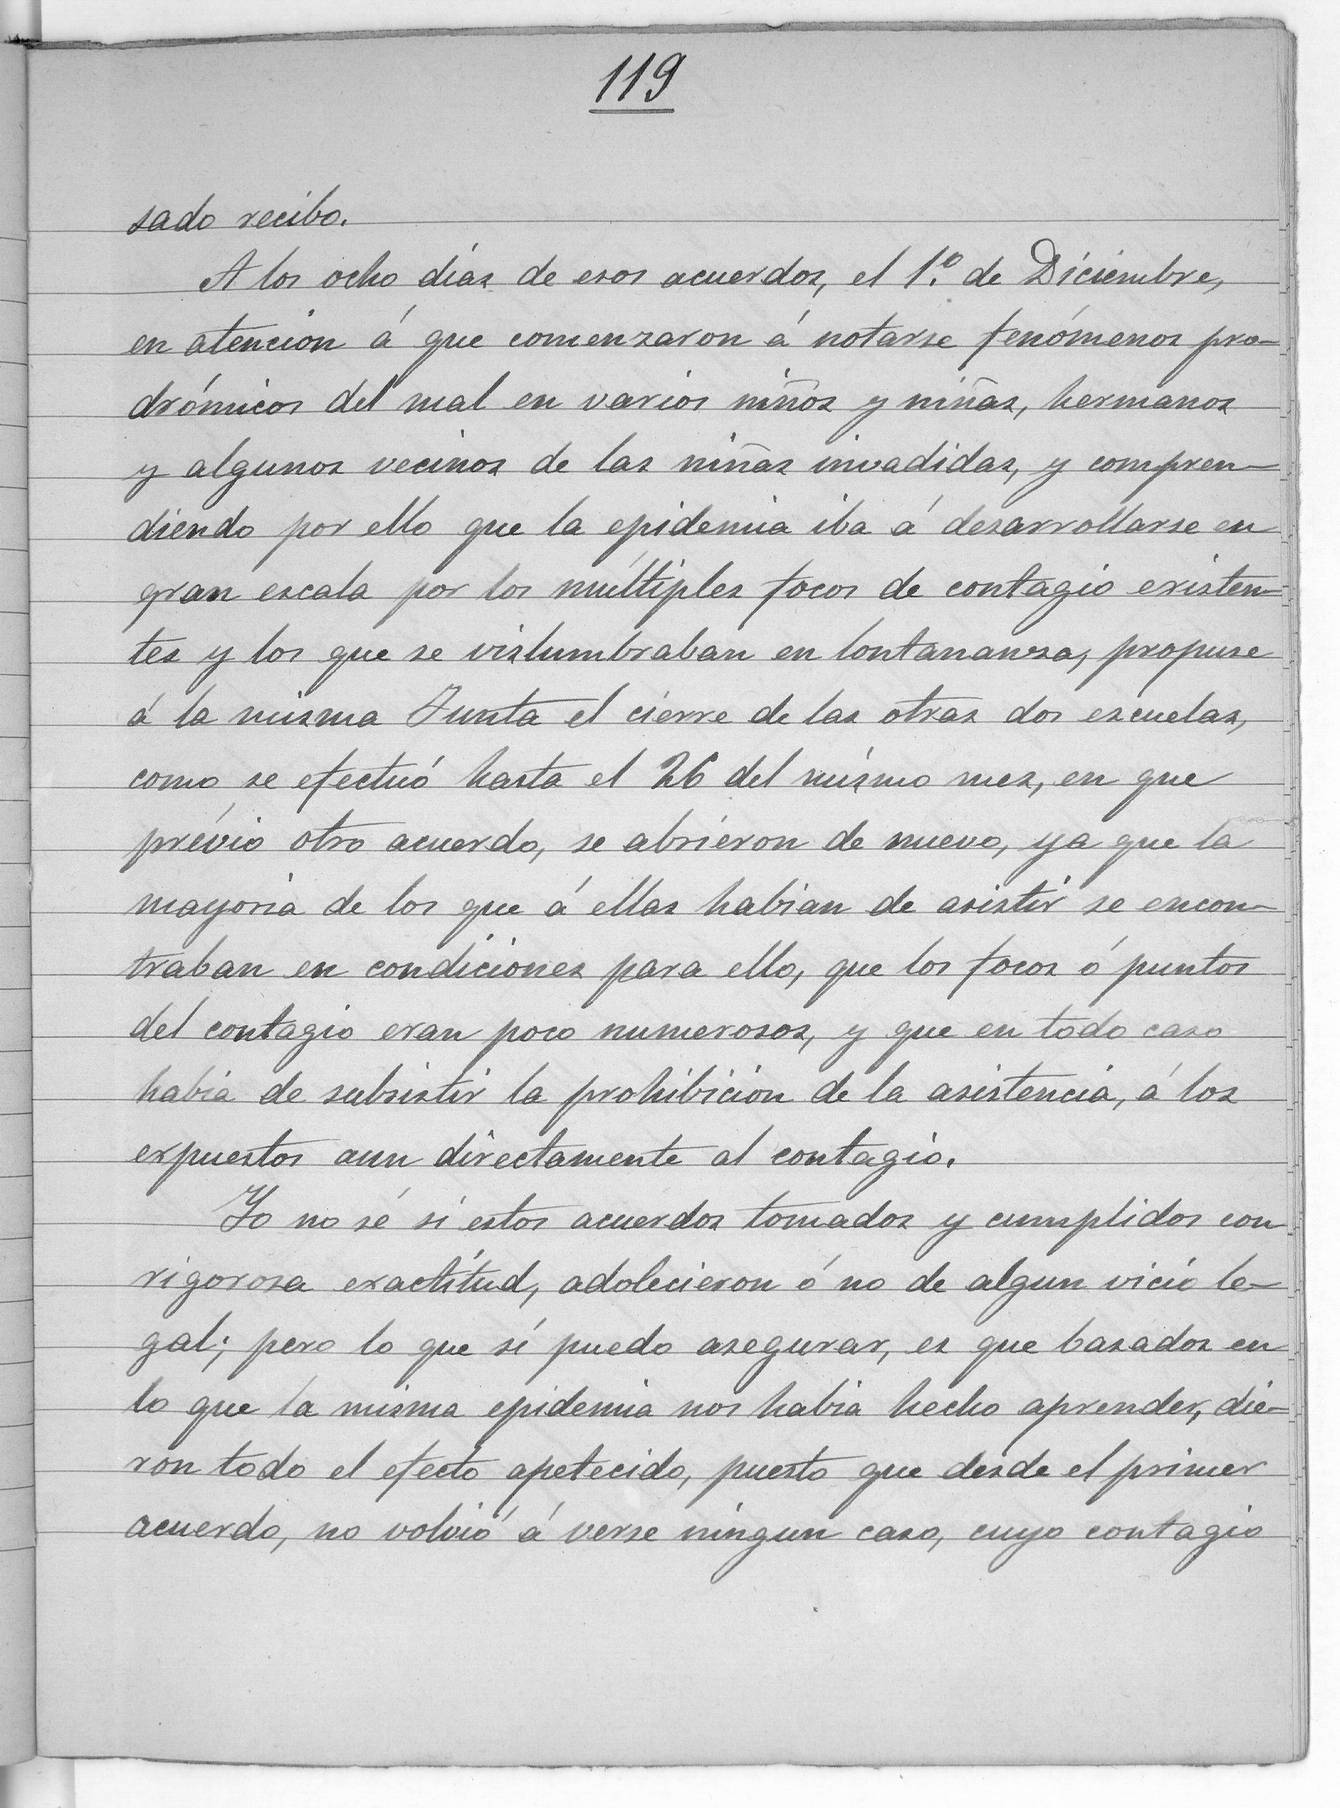 119
sado recibo.
A los ocho días de esos acuerdos, el 1.º de Diciembre,
en atencion á que comenzaron á notarse fenómenos pro-
drómicos del mal en varios niños y niñas, hermanos
y algunos vecinos de las niñas invadidas, y compren-
diendo por ello que la epidemia iba á desarrollarse en
gran escala por los múltiples focos de contagio existen-
tes y los que se vislumbraban en lontananza, propuse
á la misma Junta el cierre de las otras dos escuelas,
como se efectuó hasta el 26 del mismo mes, en que
prévio otro acuerdo, se abrieron de nuevo, ya que la
mayoria de los que á ellas habian de asistir se encon-
traban en condiciones para ello, que los focos ó puntos
del contagio eran poco numerosos, y que en todo caso
habia de subsistir la prohibicion de la asistencia, á los
expuestos aun directamente al contagio.
Yo no sé si estos acuerdos tomados y cumplidos con
rigorosa exactitud, adolecieron ó no de algun vicio le-
gal; pero lo que sí puedo asegurar, es que basados en
lo que la misma epidemia nos habia hecho aprender, die-
ron todo el efecto apetecido, puesto que desde el primer
acuerdo, no volvió á verse ningun caso, cuyo contagio